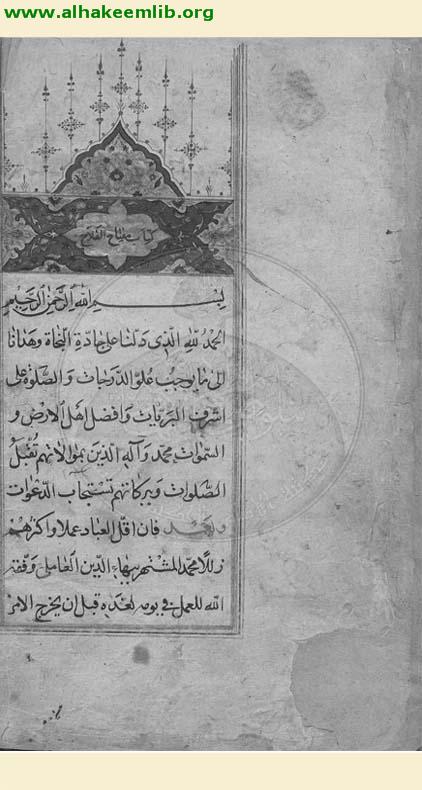 www.alhakeemlib.org
كتاب مفتاح الفلاح
بسم الله الرحمن الرحيم
الحمد لله الذي دلنا على جادة النجاة وهدانا
الى ما يوجب علو الدرجات والصلوة على
اشرف البريات وافضل اهل الارض و
السموات محمد وآله الذين بموالاتهم تقبل
الصلوات وببركاتهم تستجاب الدعوات
وبعد فان اقل العباد عملا واكثرهم
زللا محمد المشتهر ببهاء الدين العاملي وفقه
الله للعمل في يومه لغده قبل ان يخرج الامر